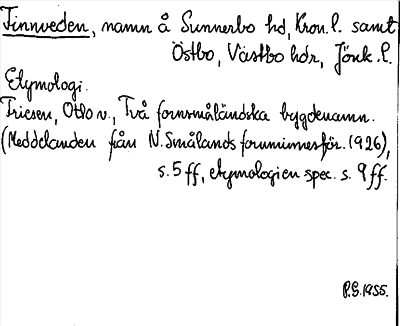 Finnveden, namn å Sunnerbo hd, Kron. l. samt
Östbo, Västbo hdr, Jönk. l.
Etymologi.
Friesen, Otto v., Två fornsmåländska bygdenamn.
(Meddelanden från N. Smålands fornminnesför. 1926),
s. 5 ff, etymologien spec. s. 9 ff.
P.G. 1955.